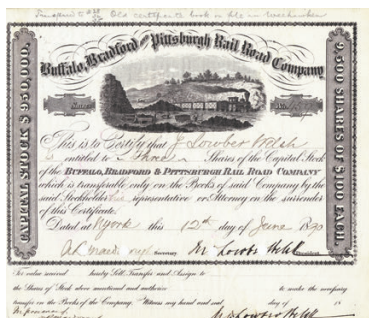 Buffalo, Bradford and Pittsburgh Rail Road Company
CAPITAL STOCK $950,000.
9,500 SHARES OF $100 EACH.
This is to Certify that J Lowber Welsh
is entitled to Three Shares of the Capital Stock
of the BUFFALO, BRADFORD & PITTSBURGH RAIL ROAD COMPANY
which is transferable only on the Books of said Company by the
said Stockholder representative or Attorney on the surrender
of this Certificate.
Dated at N York this 12th day of June 1890
Secretary President
For value received hereby Sell, Transfer and Assign to
the Shares of Stock above mentioned and authorize to make the necessary
transfer on the Books of the Company. Witness my hand and seal day of 18
In presence of